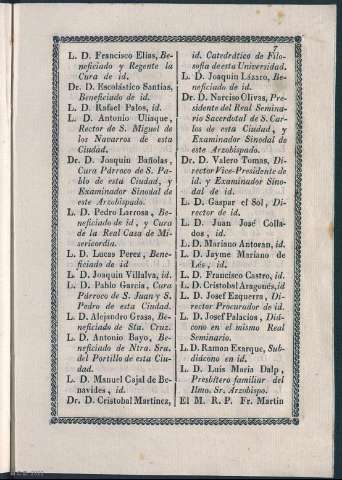 7
L. D. Francisco Elías, Be-
neficiado y Regente la
Cura de id.
Dr. D. Escolástico Santias,
Beneficiado de id.
L. D. Rafael Palos, id.
L. D. Antonio Uliaque,
Rector de S. Miguel de
los Navarros de esta
Ciudad.
Dr. D. Joaquin Bañolas,
Cura Párroco de S. Pa-
blo de esta Ciudad, y
Examinador Sinodal de
este Arzobispado.
L. D. Pedro Larrosa, Be-
neficiado de id, y Cura
de la Real Casa de Mi-
sericordia.
L. D. Lucas Perez, Bene-
ficiado de id
L. D. Joaquin Villalva, id.
L. D. Pablo García, Cura
Párroco de S. Juan y S.
Pedro de esta Ciudad.
L. D. Alejandro Grasa, Be-
neficiado de Sta. Cruz.
L. D. Antonio Bayo, Be-
neficiado de Ntra. Sra.
del Portillo de esta Ciu-
dad.
L. D. Manuel Cajal de Be-
navides, id.
Dr. D. Cristobal Martinez,
id. Catedrático de Filo-
sofia de esta Universidad.
L. D. Joaquin Lázaro, Be-
neficiado de id.
Dr. D. Narciso Olivas, Pre-
sidente del Real Semina-
rio Sacerdotal de S. Car-
los de esta Ciudad, y
Examinador Sinodal de
este Arzobispado.
Dr. D. Valero Tomas, Di-
rector Vice-Presidente de
id. y Examinador Sino-
dal de id.
L. D. Gaspar el Sol, Di-
rector de id.
L. D. Juan José Colla-
dos, id.
L. D. Mariano Antoran, id.
L. D. Jayme Mariano de
id.
L. D. Francisco Castro, id.
L. D. Cristobal Aragonés, id
L. D. Josef Ezquerra, Di-
rector Procurador de id.
L. D. Josef Palacios, Diá-
cono en el mismo Real
Seminario.
L. D. Ramon Exarque, Sub-
diácono en id.
L. D. Luis María Dalp,
Presbítero familiar del
Ilmo. Sr. Arzobispo.
El M. R. P. Fr. Martin